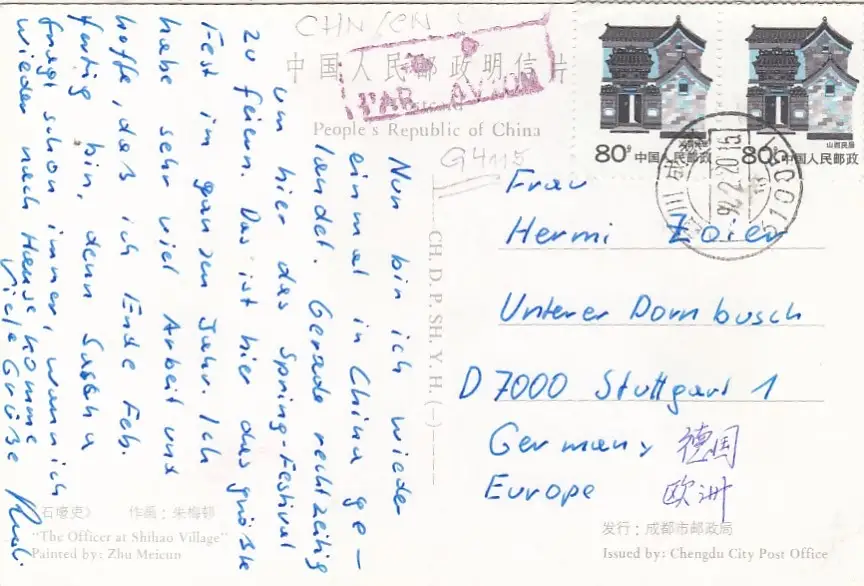 CHN
中国人民邮政明信片
PAR AVION
Postcard
People's Republic of China
G4115
80分 中国人民邮政
山西民居
80分 中国人民邮政
四川 成都
94.2.20.15
610000
Nun bin ich wieder
einmal in China ge-
landet. Gerade rechtzeitig
um hier das Spring-Festival
zu feiern. Das ist hier das größte
Fest im ganzen Jahr. Ich
habe sehr viel Arbeit und
hoffe, daß ich Ende Feb.
fertig bin, denn Sascha
fragt schon immer, wann ich
wieder nach Hause komme
Viele Grüße
Frau
Hermi Zoier
Unterer Dornbusch
D 7000 Stuttgart 1
Germany 德国
Europe 欧洲
CH. D. P. SH. Y. H. (一)
石壕吏》 作画：朱梅邨
"The Officer at Shihao Village"
Painted by: Zhu Meicun
发行：成都市邮政局
Issued by: Chengdu City Post Office